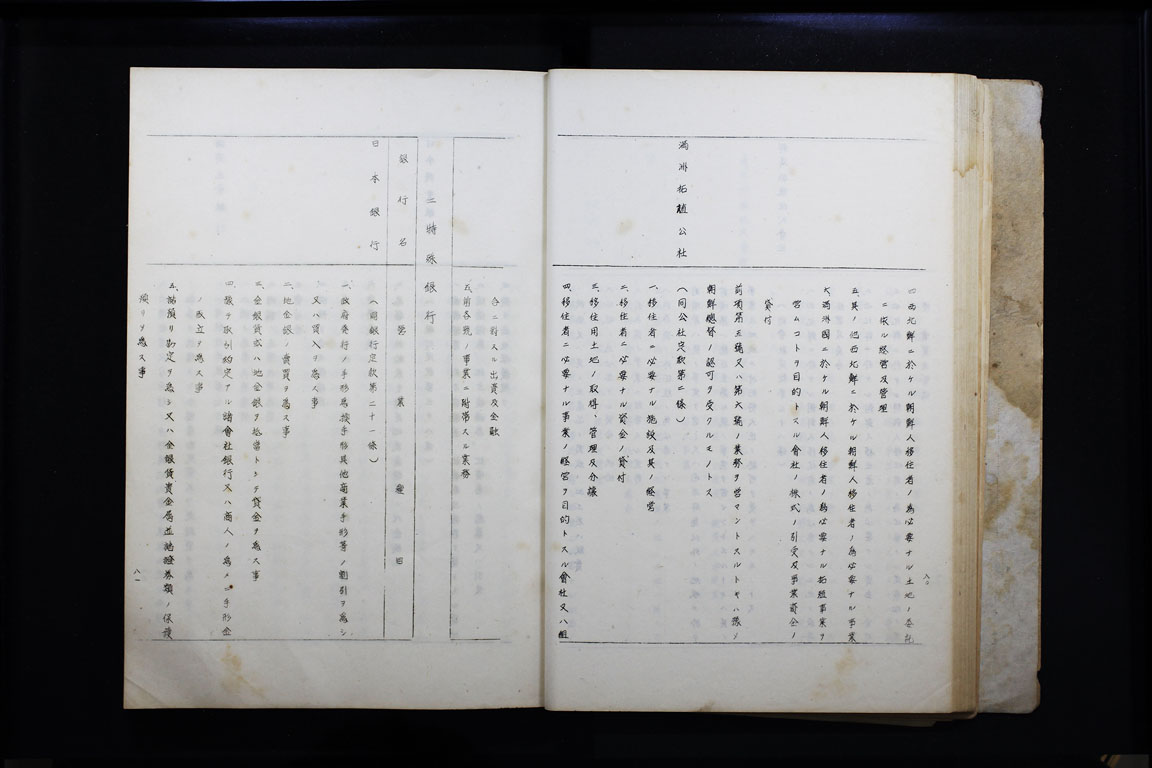 四、西北鮮ニ於ケル朝鮮人移住者ノ為必要ナル土地ノ委託
ニ依ル經営及管理
五、其ノ他西北鮮ニ於ケル朝鮮人移住者ノ為必要ナル事業
六、満洲國ニ於ケル朝鮮人移住者ノ為必要ナル拓殖事業ヲ
営ムコトヲ目的トスル會社ノ株式ノ引受及事業資金ノ
貸付
前項第五號又ハ第六號ノ業務ヲ営マントスルトキハ豫メ
朝鮮總督ノ認可ヲ受クルモノトス
満洲拓殖公社
(同公社定款第二條)
一、移住者ニ必要ナル施設及其ノ経営
二、移住者ニ必要ナル資金ノ貸付
三、移住用土地ノ取得、管理及分譲
四、移住者ニ必要ナル事業ノ経営ヲ目的トスル會社又ハ組
八〇
合ニ対スル出資及金融
五、前各號ノ事業ニ附帯スル業務
二 特殊銀行
銀行名
営業種目
日本銀行
(同銀行定款第二十一條)
一、政府発行ノ手形為換手形其他商業手形等ノ割引ヲ為シ
又ハ買入ヲ為ス事
二、地金銀ノ賣買ヲ為ス事
三、金銀貨或ハ地金銀ヲ抵當トシテ貸金ヲ為ス事
四、豫テ取引約定アル諸會社銀行又ハ商人ノ為メニ手形金
ノ取立ヲ為ス事
五、諸預リ勘定ヲ為シ又ハ金銀貨貴金屬並諸證券類ノ保護
預リヲ為ス事
八一